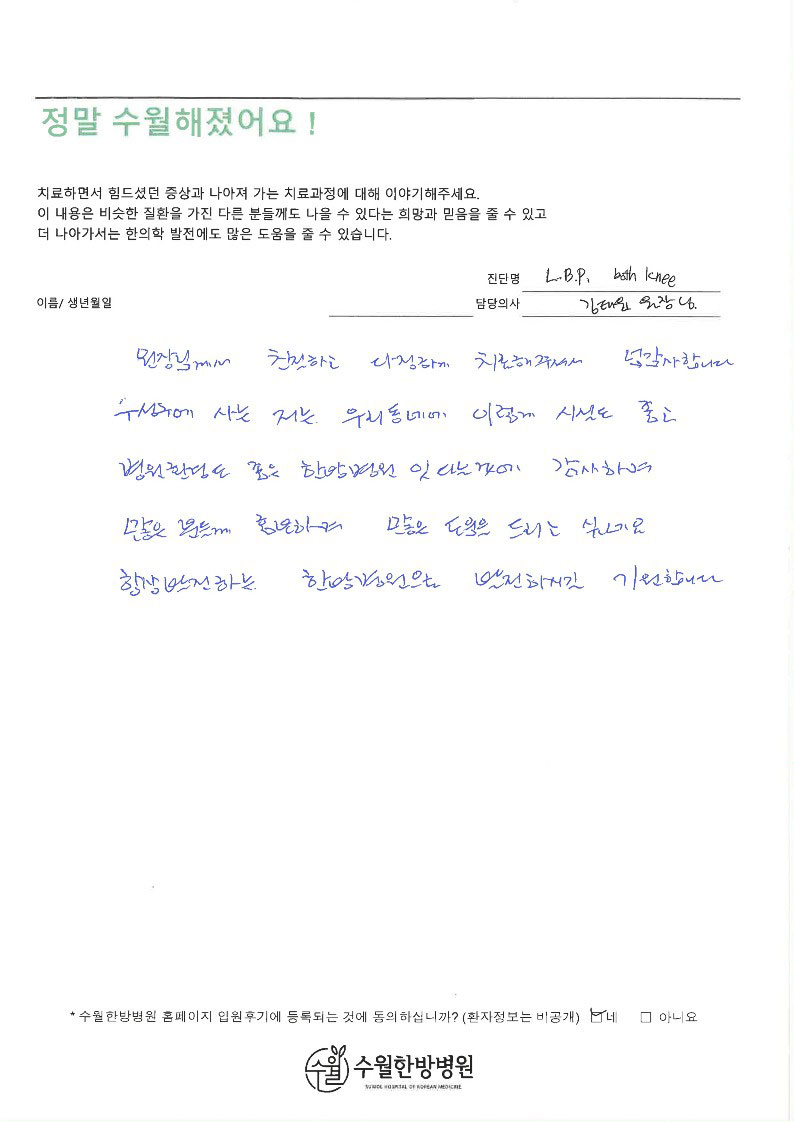 정말 수월해졌어요 !
치료하면서 힘드셨던 증상과 나아져 가는 치료과정에 대해 이야기해주세요.
이 내용은 비슷한 질환을 가진 다른 분들께도 나을 수 있다는 희망과 믿음을 줄 수 있고
더 나아가서는 한의학 발전에도 많은 도움을 줄 수 있습니다.
진단명 L.B.P. both knee
이름/ 생년월일 담당의사 김태원 원장님.
원장님께서 친절하고 다정하게 치료해주셔서 넘감사합니다
수성구에 사는 저는 우리동네에 이렇게 시설도 좋고
병원환경도 좋은 한방병원 잇다는거에 감사하며
많은 분들께 홍보하며 많은 도움을 드리고 싶네요
항상발전하는 한방병원으로 발전하시길 기원합니다
* 수월한방병원 홈페이지 입원후기에 등록되는 것에 동의하십니까? (환자정보는 비공개) ☑네 □ 아니요
수월 수월한방병원
SUWOL HOSPITAL OF KOREAN MEDICINE